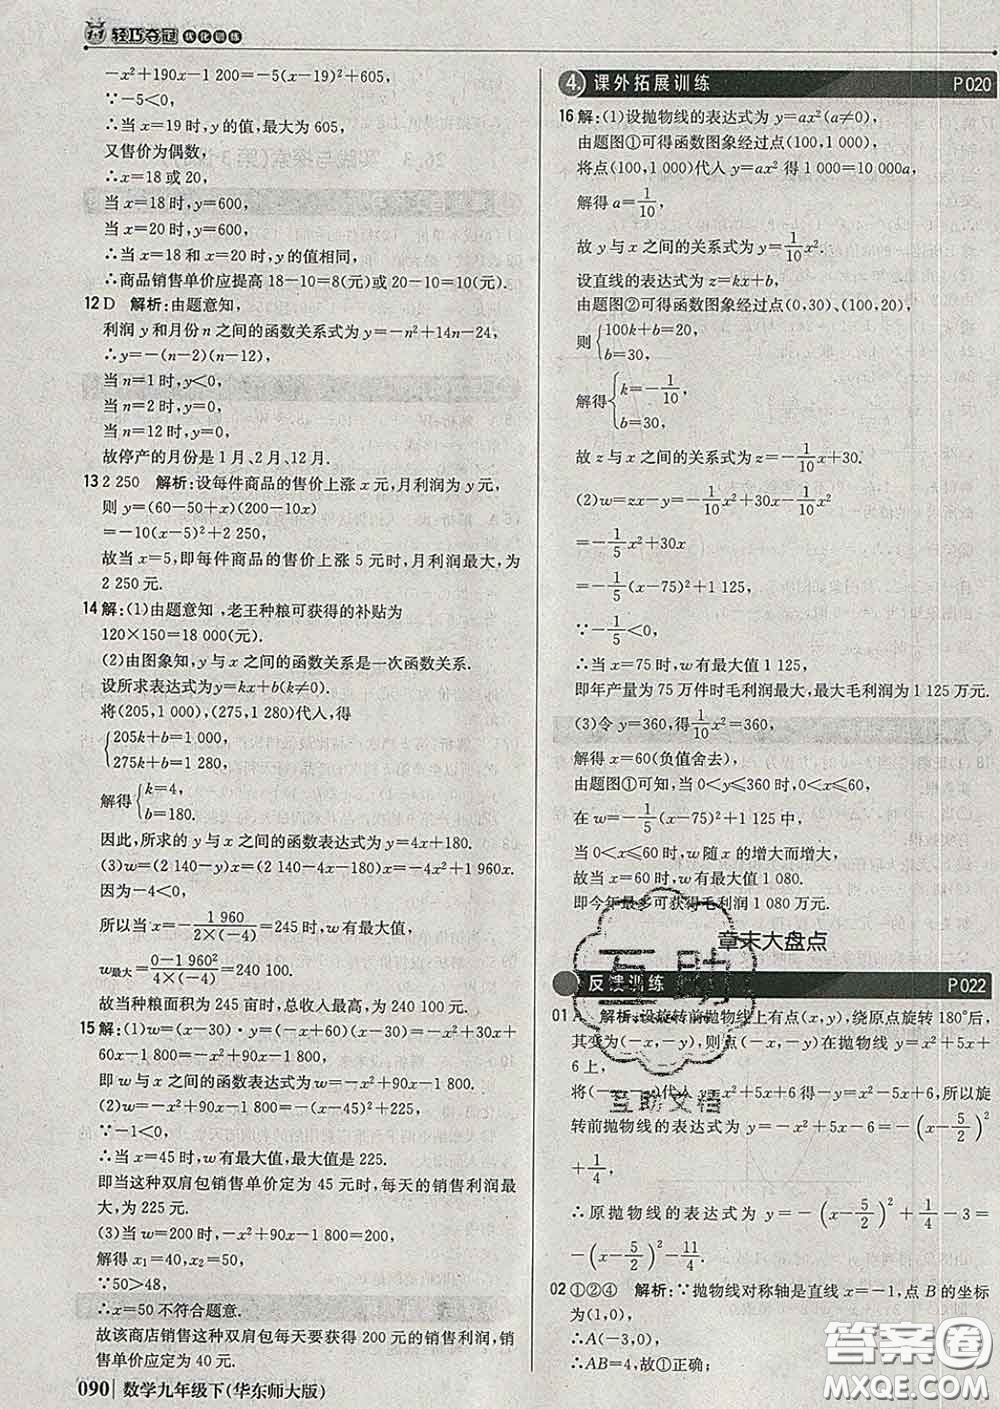 1+1 轻巧夺冠 优化训练
-x²+190x-1 200=-5(x-19)²+605,
∵-5<0,
∴当 x=19 时,y 的值,最大为 605,
又售价为偶数,
∴x=18 或 20,
当 x=18 时,y=600,
当 x=20 时,y=600,
∴当 x=18 和 x=20 时,y 的值相同,
∴商品销售单价应提高 18-10=8(元)或 20-10=10(元).
12 D 解析:由题意知,
利润 y 和月份 n 之间的函数关系式为 y=-n²+14n-24,
∴y=-(n-2)(n-12),
当 n=1 时,y<0,
当 n=2 时,y=0,
当 n=12 时,y=0,
故停产的月份是 1月、2月、12月.
13 2 250 解析:设每件商品的售价上涨 x 元,月利润为 y 元,
则 y=(60-50+x)(200-10x)
=-10(x-5)²+2 250,
故当 x=5,即每件商品的售价上涨 5 元时,月利润最大,为
2 250 元.
14 解:(1)由题意知,老王种粮可获得的补贴为
120×150=18 000(元).
(2)由图象知,y 与 x 之间的函数关系是一次函数关系.
设所求表达式为y=kx+b(k≠0).
将(205,1 000),(275,1 280)代入,得
{205k+b=1 000,
275k+b=1 280.
解得{k=4,
b=180.
因此,所求的 y 与 x 之间的函数表达式为 y=4x+180.
(3)w=(2 140-y)x=(2 140-4x-180)x=-4x²+1 960x.
因为-4<0,
所以当 x=-1 960/(2×(-4))=245 时,w 有最大值,
w最大=(0-1 960²)/(4×(-4))=240 100.
故当种粮面积为 245 亩时,总收入最高,为 240 100 元.
15 解:(1)w=(x-30)·y=(-x+60)(x-30)=-x²+30x+
60x-1 800=-x²+90x-1 800,
即 w 与 x 之间的函数表达式为 w=-x²+90x-1 800.
(2)w=-x²+90x-1 800=-(x-45)²+225,
∵-1<0,
∴当 x=45 时,w 有最大值,最大值是 225.
即当这种双肩包销售单价定为 45 元时,每天的销售利润最
大,为 225 元.
(3)当 w=200 时,-x²+90x-1 800=200,
解得 x₁=40,x₂=50.
∵50>48,
∴x=50 不符合题意.
故该商店销售这种双肩包每天要获得 200 元的销售利润,销
售单价应定为 40 元.
090 数学九年级下(华东师大版)
4. 课外拓展训练 P020
16 解:(1)设抛物线的表达式为 y=ax²(a≠0),
由题图①可得函数图象经过点(100,1 000),
将点(100,1 000)代入 y=ax² 得 1 000=10 000a,
解得 a=1/10,
故 y 与 x 之间的关系式为 y=1/10x².
设直线的表达式为 z=kx+b,
由题图②可得函数图象经过点(0,30)、(100,20),
则{100k+b=20,
b=30,
解得{k=-1/10,
b=30,
故 z 与 x 之间的关系式为 z=-1/10x+30.
(2)w=zx-y=-1/10x²+30x-1/10x²
=-1/5x²+30x
=-1/5(x-75)²+1 125,
∵-1/5<0,
∴当 x=75 时,w 有最大值 1 125,
即年产量为 75 万件时毛利润最大,最大毛利润为 1 125 万元.
(3)令 y=360,得1/10x²=360,
解得 x=60(负值舍去),
由题图①可知,当 0<y≤360 时,0<x≤60,
在 w=-1/5(x-75)²+1 125 中,
当 0<x≤60 时,w 随 x 的增大而增大,
故当 x=60 时,w有最大值 1 080.
即今年最多可获得毛利润 1 080 万元.
章末大盘点
反馈训练 P022
01 A 解析:设旋转前抛物线上有点(x,y),绕原点旋转 180°后,
其变为(-x,-y),则点(-x,-y)在抛物线 y=x²+5x+
6 上,
将(-x,-y)代入 y=x²+5x+6得-y=x²-5x+6,所以旋
转前抛物线的表达式为 y=-x²+5x-6=-(x-5/2)²
+1/4,
∴原抛物线的表达式为 y=-(x-5/2)²+1/4-3=
-(x-5/2)²-11/4.
02 ①②④ 解析:∵抛物线对称轴是直线 x=-1,点 B 的坐标
为(1,0),
∴A(-3,0),
∴AB=4,故①正确;
互助
互助文档
答案圈
MXQE.COM